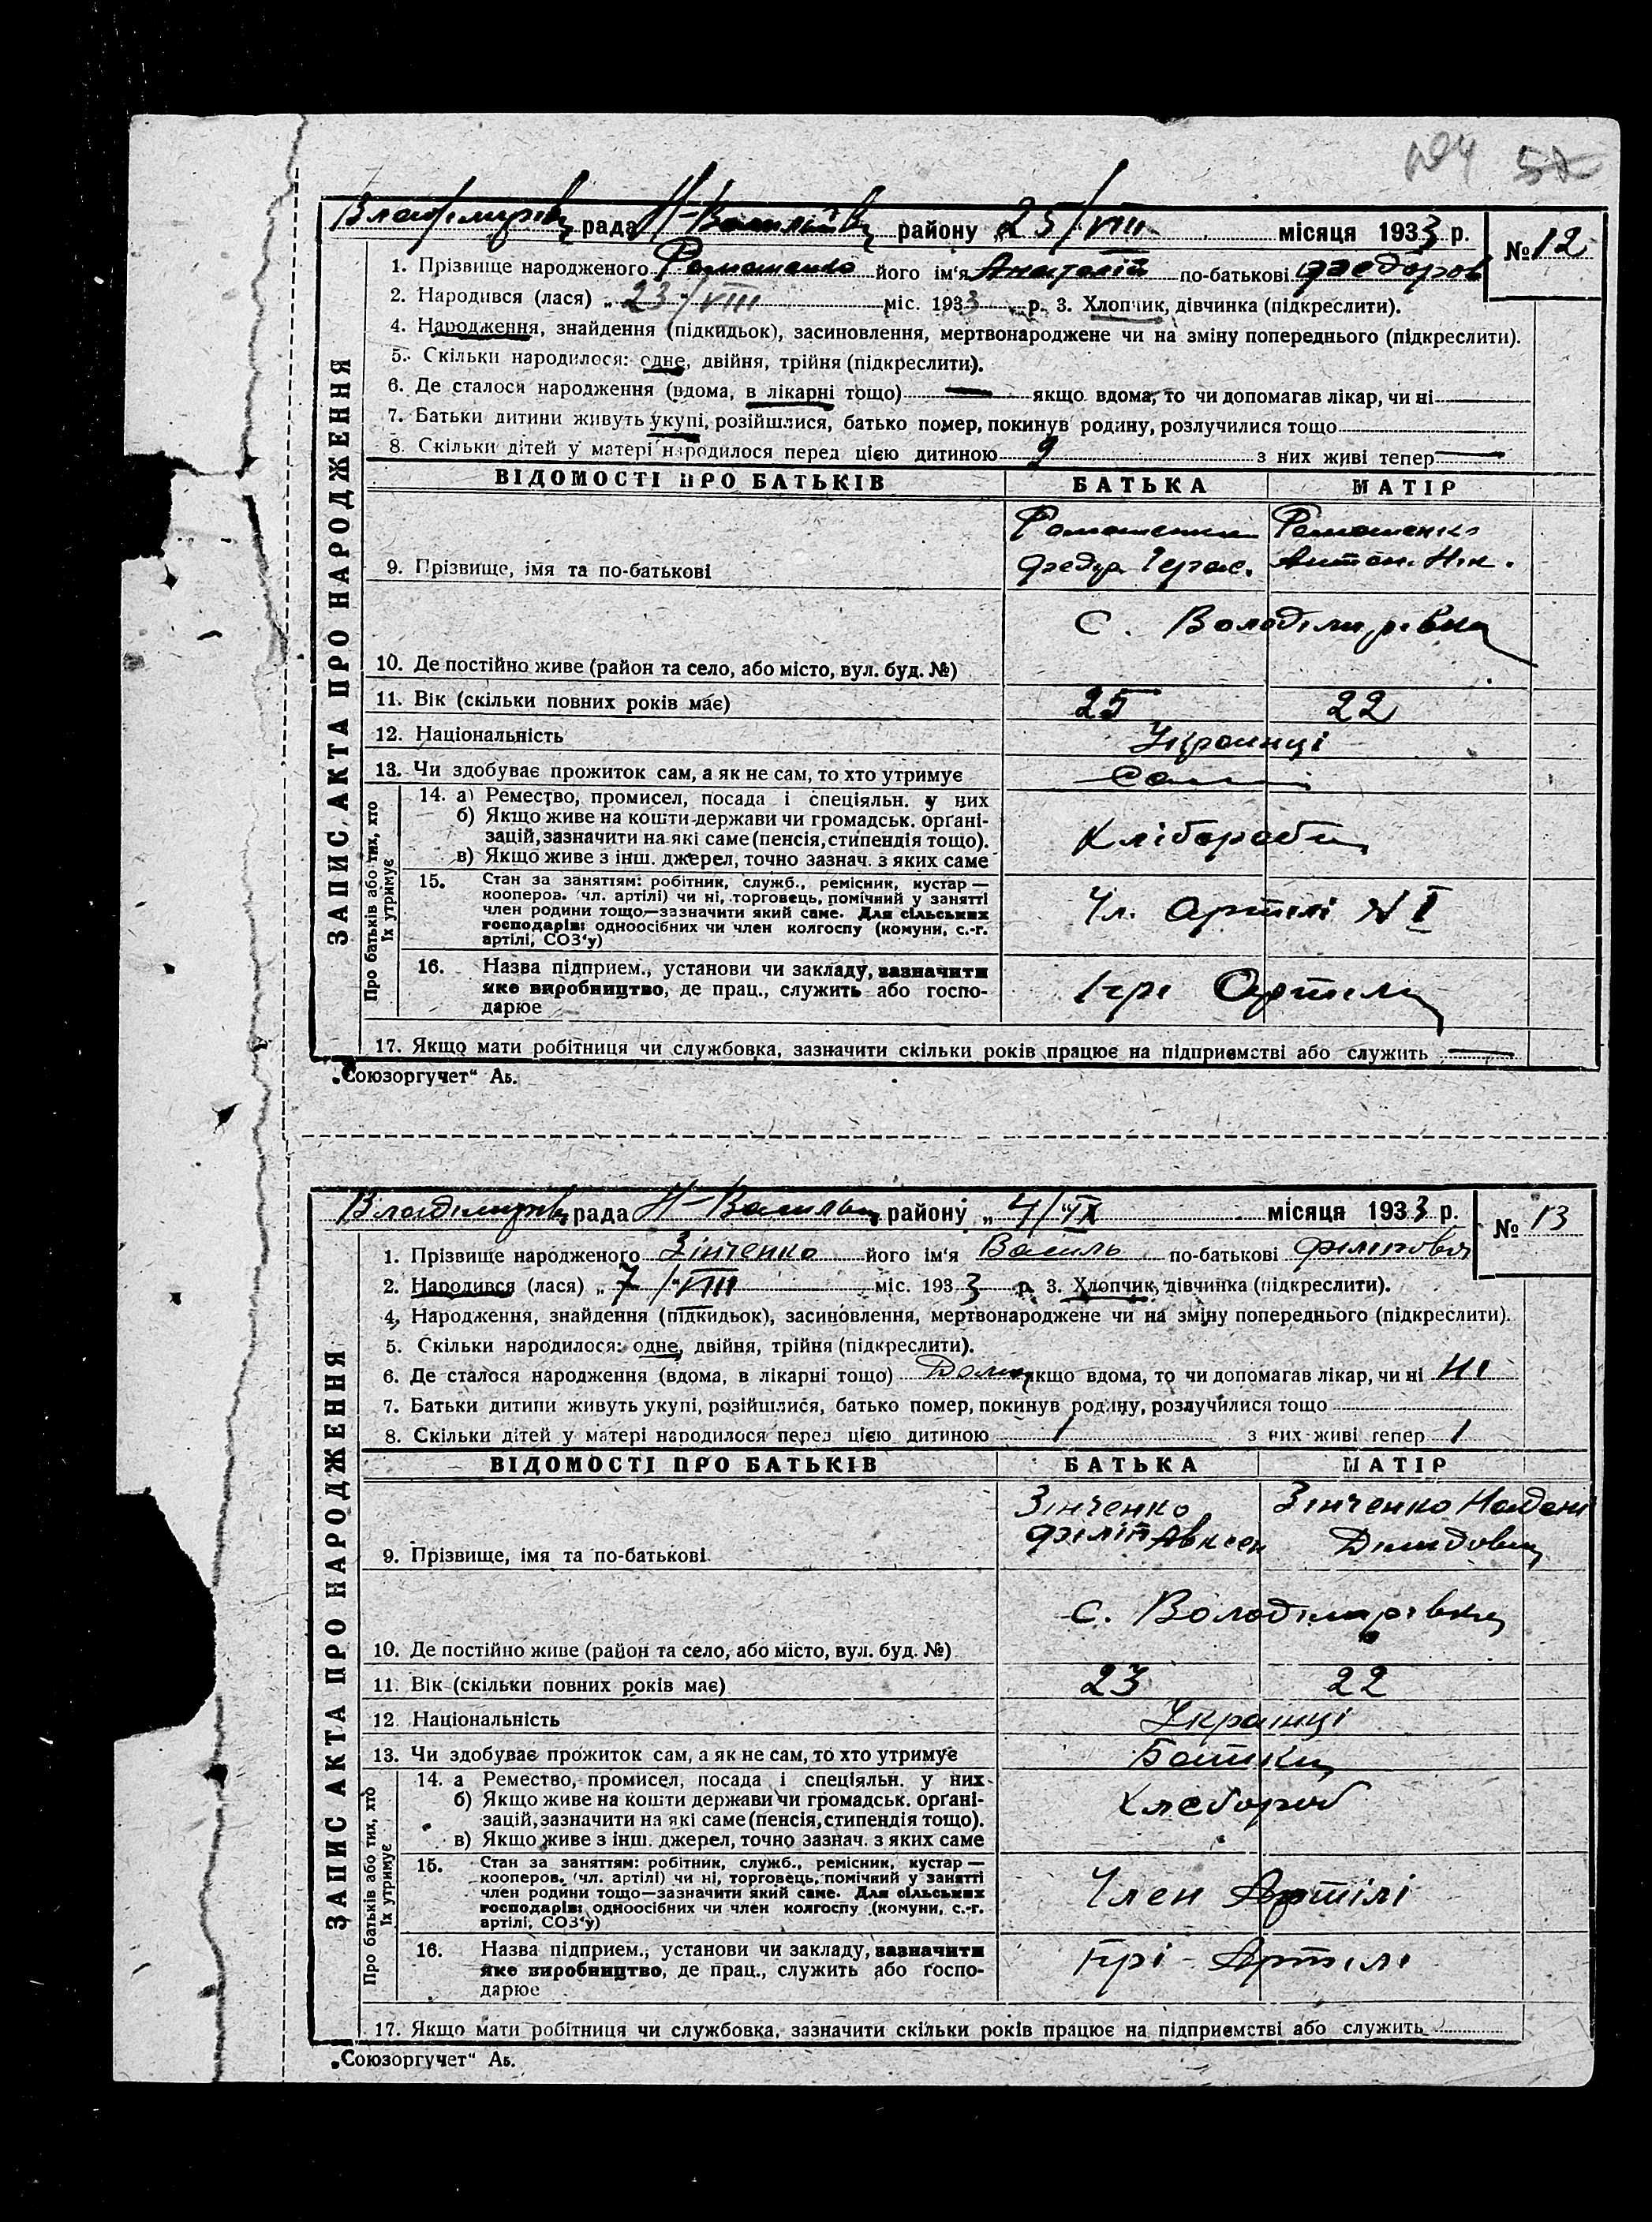 194 57
Владімирівц рада Н-Василівц району „25/VIII місяця 1933 р. №12
1. Прізвище народженого Ромашенко його ім'я Анатолій по-батькові Федоров
2. Народився (лася) „23/VIII міс. 1933 р. 3. Хлопчик, дівчинка (підкреслити).
4. Народження, знайдення (підкидьок), засиновлення, мертвонароджене чи на зміну попереднього (підкреслити).
5. Скільки народилося: одне, двійня, трійня (підкреслити).
6. Де сталося народження (вдома, в лікарні тощо) — якщо вдома, то чи допомагав лікар, чи ні
7. Батьки дитини живуть укупі, розійшлися, батько помер, покинув родину, розлучилися тощо
8. Скільки дітей у матері народилося перед цією дитиною 9 з них живі тепер —
ВІДОМОСТІ ПРО БАТЬКІВ БАТЬКА МАТІР
Ромашенко Ромашенко
9. Прізвище, імя та по-батькові Федур Герас. Антон. Ник.
с. Володімирівка
10. Де постійно живе (район та село, або місто, вул. буд. №)
11. Вік (скільки повних років має) 25 22
12. Національність Українці
13. Чи здобуває прожиток сам, а як не сам, то хто утримує Самі
ЗАПИС АКТА ПРО НАРОДЖЕННЯ
Про батьків або тих, хто
їх утримує
14. а) Ремество, промисел, посада і спеціяльн. у них
б) Якщо живе на кошти держави чи громадськ. органі-
зацій, зазначити на які саме (пенсія, стипендія тощо). Хлібороби
в) Якщо живе з інш. джерел, точно зазнач. з яких саме
15. Стан за заняттям: робітник, служб., ремісник, кустар —
кооперов. (чл. артілі) чи ні, торговець, помічний у занятті
член родини тощо—зазначити який саме. Для сільських Чл. Артілі № I
господарів: одноосібних чи член колгоспу (комуни, с.-г.
артілі, СОЗ'у)
16. Назва підприєм., установи чи закладу, зазначити
яке виробництво, де прац., служить або госпо-
дарює
17. Якщо мати робітниця чи службовка, зазначити скільки років працює на підприємстві або служить —
„Союзоргучет" Аь.
Владімирівц рада Н-Васильв району „4/IX місяця 1933 р. № 13
1. Прізвище народженого Зінченко його ім'я Василь по-батькові Філіпович
2. Народився (лася) „7/VIII міс. 1933 р. 3. Хлопчик, дівчинка (підкреслити).
4. Народження, знайдення (підкидьок), засиновлення, мертвонароджене чи на зміну попереднього (підкреслити).
5. Скільки народилося: одне, двійня, трійня (підкреслити).
6. Де сталося народження (вдома, в лікарні тощо) Дома якщо вдома, то чи допомагав лікар, чи ні Ні
7. Батьки дитини живуть укупі, розійшлися, батько помер, покинув родину, розлучилися тощо
8. Скільки дітей у матері народилося перед цією дитиною 1 з них живі тепер 1
ВІДОМОСТІ ПРО БАТЬКІВ БАТЬКА МАТІР
Зінченко Зінченко
9. Прізвище, імя та по-батькові Філіп Авксен Демидовн
с. Володімирівка
10. Де постійно живе (район та село, або місто, вул. буд. №)
11. Вік (скільки повних років має) 23 22
12. Національність Українці
13. Чи здобуває прожиток сам, а як не сам, то хто утримує Батьки
ЗАПИС АКТА ПРО НАРОДЖЕННЯ
Про батьків або тих, хто
їх утримує
14. а Ремество, промисел, посада і спеціяльн. у них
б) Якщо живе на кошти держави чи громадськ. органі- Хлебороб
зацій, зазначити на які саме (пенсія, стипендія тощо).
в) Якщо живе з інш. джерел, точно зазнач. з яких саме
15. Стан за заняттям: робітник, служб., ремісник, кустар —
кооперов. (чл. артілі) чи ні, торговець, помічний у занятті
член родини тощо—зазначити який саме. Для сільських Член Артілі
господарів: одноосібних чи член колгоспу (комуни, с.-г.
артілі, СОЗ'у)
16. Назва підприєм., установи чи закладу, зазначити
яке виробництво, де прац., служить або госпо- Прі Артілі
дарює
17. Якщо мати робітниця чи службовка, зазначити скільки років працює на підприємстві або служить
„Союзоргучет" Аь.